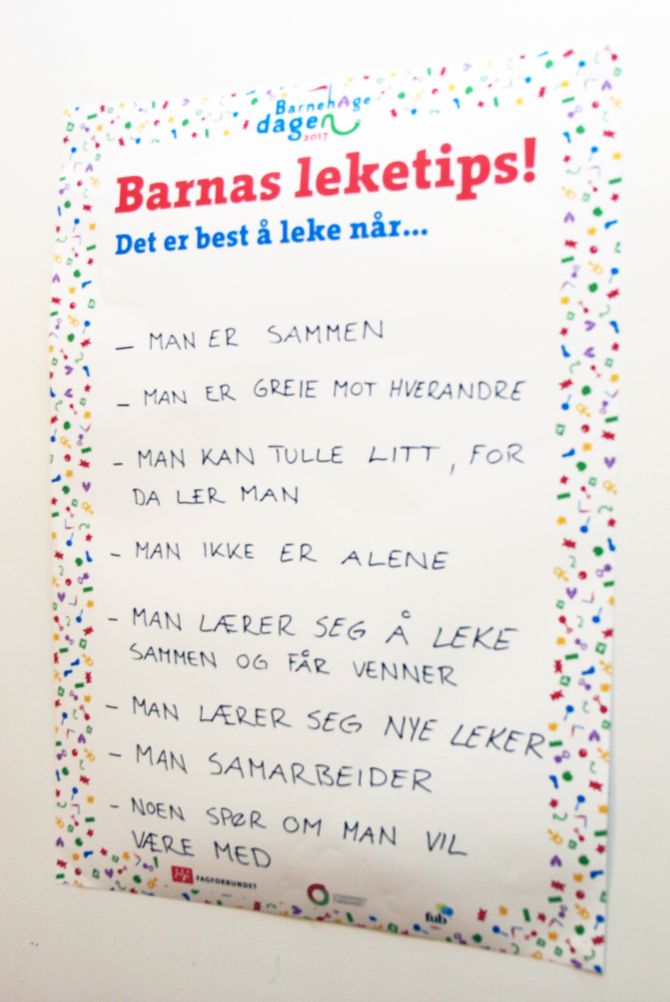 Barnehage
dagen
2017
Barnas leketips!
Det er best å leke når...
— MAN ER SAMMEN
— MAN ER GREIE MOT HVERANDRE
- MAN KAN TULLE LITT, FOR
DA LER MAN
- MAN IKKE ER ALENE
- MAN LÆRER SEG Å LEKE
SAMMEN OG FÅR VENNER
- MAN LÆRER SEG NYE LEKER
- MAN SAMARBEIDER
- NOEN SPØR OM MAN VIL
VÆRE MED
FAGFORBUNDET
fub